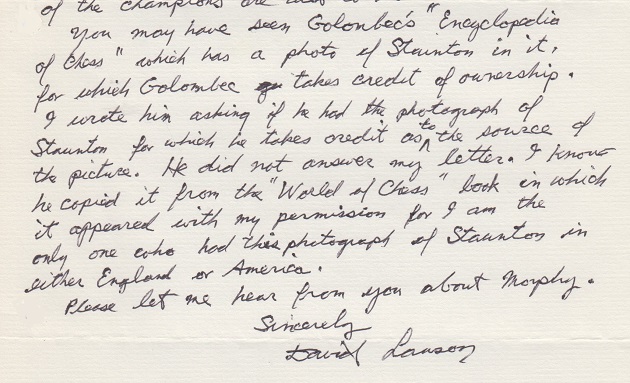 of the champions are
You may have seen Golombec's "Encyclopedia
of Chess" which has a photo of Staunton in it,
for which Golombec takes credit of ownership.
I wrote him asking if he had the photograph of
Staunton for which he takes credit as to the source of
the picture. He did not answer my letter. I know
he copied it from the "World of Chess" book in which
it appeared with my permission for I am the
only one who had this photograph of Staunton in
either England or America.
Please let me hear from you about Morphy.
Sincerely
David Lawson